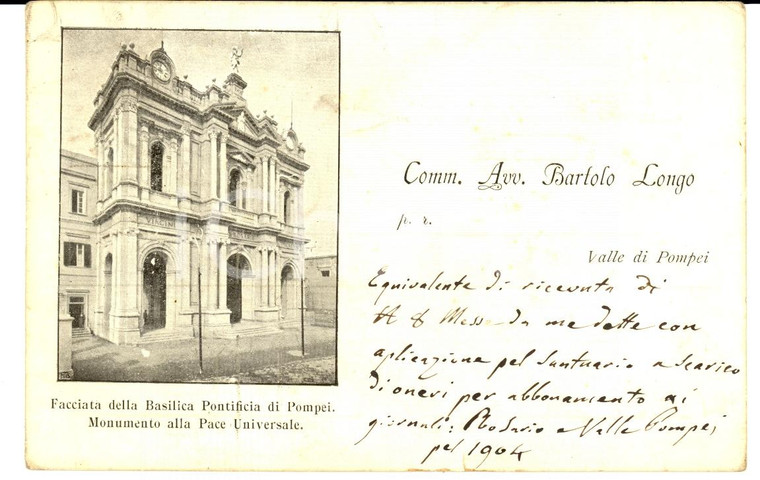 Comm. Avv. Bartolo Longo
p. r.
Valle di Pompei
Equivalente di ricevuta di
Messe da me dette con
aplicazione pel Santuario a scarico
di oneri per abbonamento ai
giornali: Rosario e Valle Pompei
pel 1904
Facciata della Basilica Pontificia di Pompei.
Monumento alla Pace Universale.